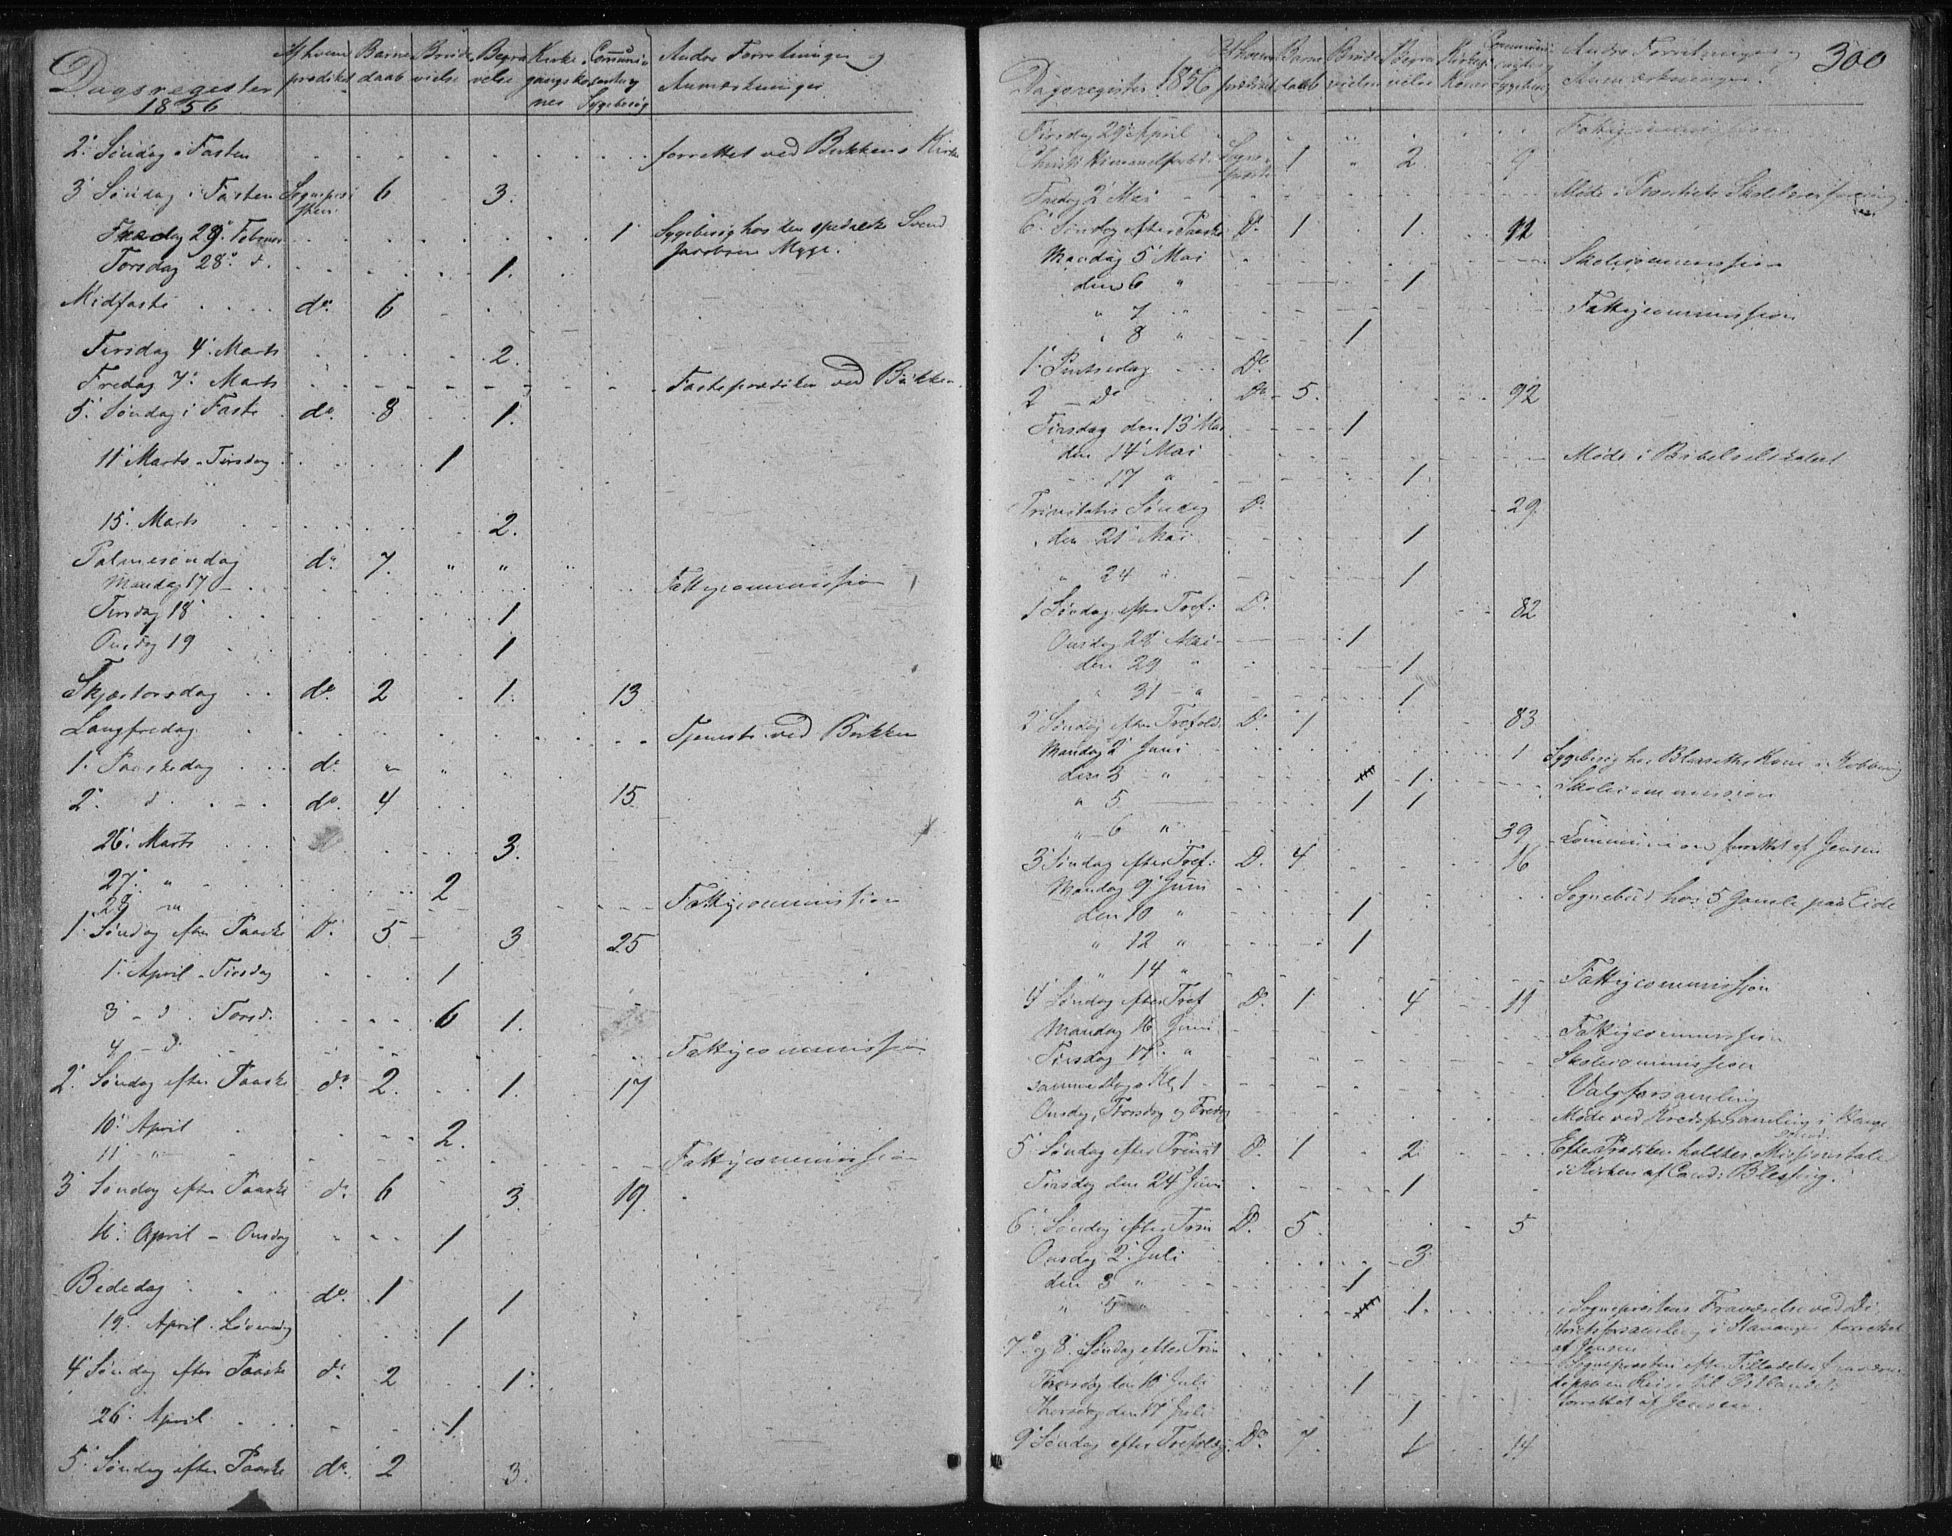 Dagsregister 1856 | Af hvem prædiket | Barne daab | Brude vielse | Begra velse | Kirke gangsko ner | Communi canter og Sygebesøg | Andre Forretninger og Anmærkninger
2. Søndag i Fasten forrettet ved Bakkens Kirke
3 Søndag i Fasten Sognepræsten 6 3.
28. Februar 1 Sygebesøg hos den spedalske Svend
Jacobsen Myge.
Torsdag 28. d. 1.
Midfaste do. 6
Tirsdag 4. Marts 2.
Fredag 7. Marts Fasteprædiken ved Bakken.
5. Søndag i Faste do. 8 1.
11 Marts Tirsdag 1
15. Marts 2.
Palmesøndag do. 7. " " "
Mandag 17 Fattigcommission
Tirsdag 18 1
Onsdag 19 1
Skjærtorsdag do. 2 1. 13
Langfredag Tjeneste ved Bakken
1. Paaskedag do. " " "
2. d. do. 4 15
26. Marts 3.
27. " 2
28 " Fattigcommission
1 Søndag efter Paaske D. 5 3 25
1. April Tirsdag 1
3 - d. Torsd. 6 1.
4 - d. Fattigcommission
2. Søndag efter Paaske do 2. 1. 17
10. April 2.
11 " Fattigcommission
3 Søndag efter Paaske do 6 3. 19.
16. April - Onsdag 1
Bededag do. 1 1
19. April Løverdag 1
4 Søndag efter Paaske do 2 1.
26. April 1.
5. Søndag efter Paaske do. 2 3.
300
Dagsregister 1856 | Af hvem prædiket | Barne daab | Brude vielse | Begra velse | Kirkeg. Koner | Communicanter og Sygebesøg | Andre Forretninger og Anmærkninger
Tirsdag 29 April Fattigcommission
Christi Himmelfartsd. Sogne præsten 1 " 2 9
Fredag 2 Mai Møde i Præstiets
6. Søndag efter Paaske D. 1 1.
Mandag 5 Mai Skolecommission
den 6 " 1
" 7 " Fattigcommission
" 8 " 1
1. Pintsedag Do
2 - Do Do 5. 92
Tirsdag den 13 Mai 1
den 14 Mai Møde i Bibelselskabet
17 " 1.
Trinitatis Søndag D. 29
den 21 Mai 1
" 24 " 1
1 Søndag efter Tref: D. 82
Onsdag 28 Mai 1
den 29 " 1
" 31 - " 1
2 Søndag efter Trefold. D. 1 83
Mandag 2 Juni 1 Sygebesøg hos Kone i
den 3 " 1. Skolecommission
" 5 1 1
" 6 " 39 Communion forrettet af Jensen
3 Søndag efter Tref: D. 4 16
Mandag 9 Juni Sognebud hos 5 Gamle paa Eide
den 10 " 1
" 12 " 1
" 14 " Fattigcommission
4 Søndag efter Tref D. 1 4 11
Mandag 16 Juni Fattigcommission
Tirsdag 17 " Skolecommission
samme Dag Kl. 1 Valgforsamling
Onsdag, Torsdag og Fredag Møde ved
5 Søndag efter Trinit D. 1 2 Efter Prædiken holdtes Missionstale
i Kirken af Cand: Blessing.
Tirsdag den 24 Juni 1
6. Søndag efter Trin D. 5 5
Onsdag 2. Juli 3.
den 3 " 1
" 5 1. i Sognepræstens Fraværelse ved Di-
strictsforsamling i Stavanger forrettet
af Jensen
7. og 8. Søndag efter Trin Sognepræsten efter Tilladelse
Torsdag den 10 Juli 1 paa en Reise til
Thorsdag den 17 Juli 1 forrettet af Jensen
9 Søndag efter Trefoldig. Do 7. 14